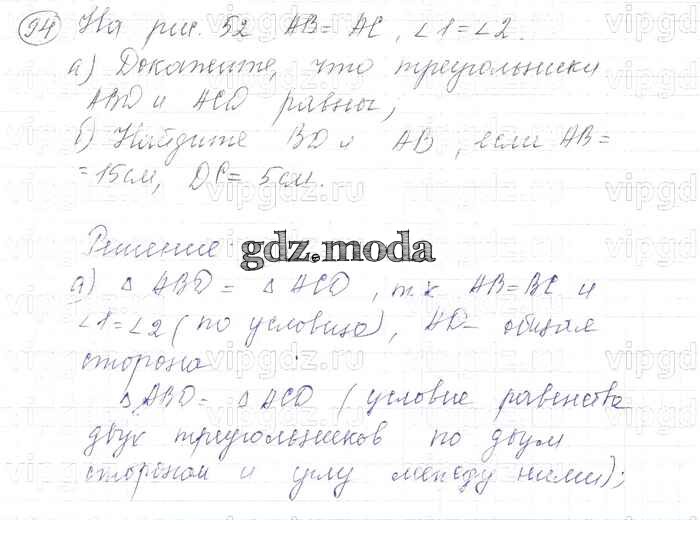 94 На рис. 52 AB= AC, ∠1=∠2.
а) Докажите, что треугольники
ABD и ACD равны;
б) Найдите BD и AB, если AB=
=15см, DC= 5см.
Решение
gdz.moda
а) △ ABD = △ ACD, т.к AB=BC и
∠1=∠2 (по условию), AD- общая
сторона
△ABD= △ ACD (условие равенства
двух треугольников по двум
сторонам и углу между ними);